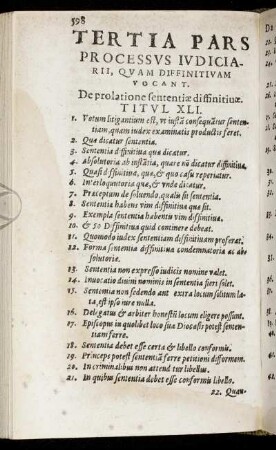 598
TERTIA PARS
PROCESSVS IVDICIA-
RII, QVAM DIFFINITIVAM
VOCANT.
De prolatione sententiæ diffinitiuæ.
TITVL XLI.
1. Votum litigantium est, vt iustā consequātur senten-
tiam, quam iudex examinatis productis feret.
2. Quæ dicatur sententia.
3. Sententia diffinitiua quæ dicatur.
4. Absolutoria ab instātia, quare nō dicatur diffinitiua.
5. Quasi diffinitiua, quæ, & quo casu reperiatur.
6. Interloquutoria quæ, & vnde dicatur.
7. Præceptum de soluendo, quando sit sententia.
8. Sententia habens vim diffinitiuæ quæ sit.
9. Exempla sententiæ habentis vim diffinitiuæ.
10. & 50 Diffinitiua quid continere debeat.
11. Quomodo iudex sententiam diffinitiuam proferat.
12. Forma sententiæ diffinitiuæ condemnatoriæ ac ab-
solutoriæ.
13. Sententia non expresso iudicis nomine valet.
14. Inuocatio diuini nominis in sententia fieri solet.
15. Sententia non sedendo aut extra locum solitum la-
ta, est ipso iure nulla.
16. Delegatus & arbiter honestū locum eligere possunt.
17. Episcopus in quolibet loco suæ Diocesis potest senten-
tiam ferre.
18. Sententia debet esse certa & libello conformis.
19. Princeps potest sententiā ferre petitioni difformem.
20. In criminalibus non attenditur libellus.
21. In quibus sententia debet esse conformis libello.
22. Quan-